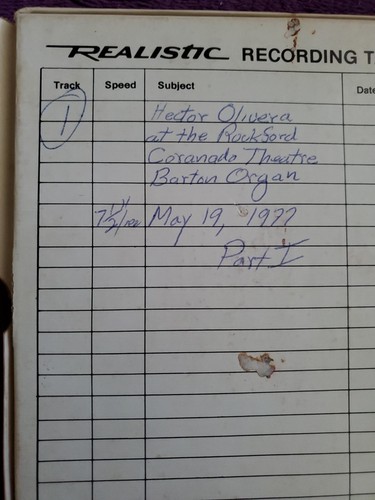 REALISTIC RECORDING T
Track Speed Subject Date
1 Hector Olivera
at the Rockford
Coranado Theatre
Barton Organ
7 1/2"/ May 19, 1977
Part I